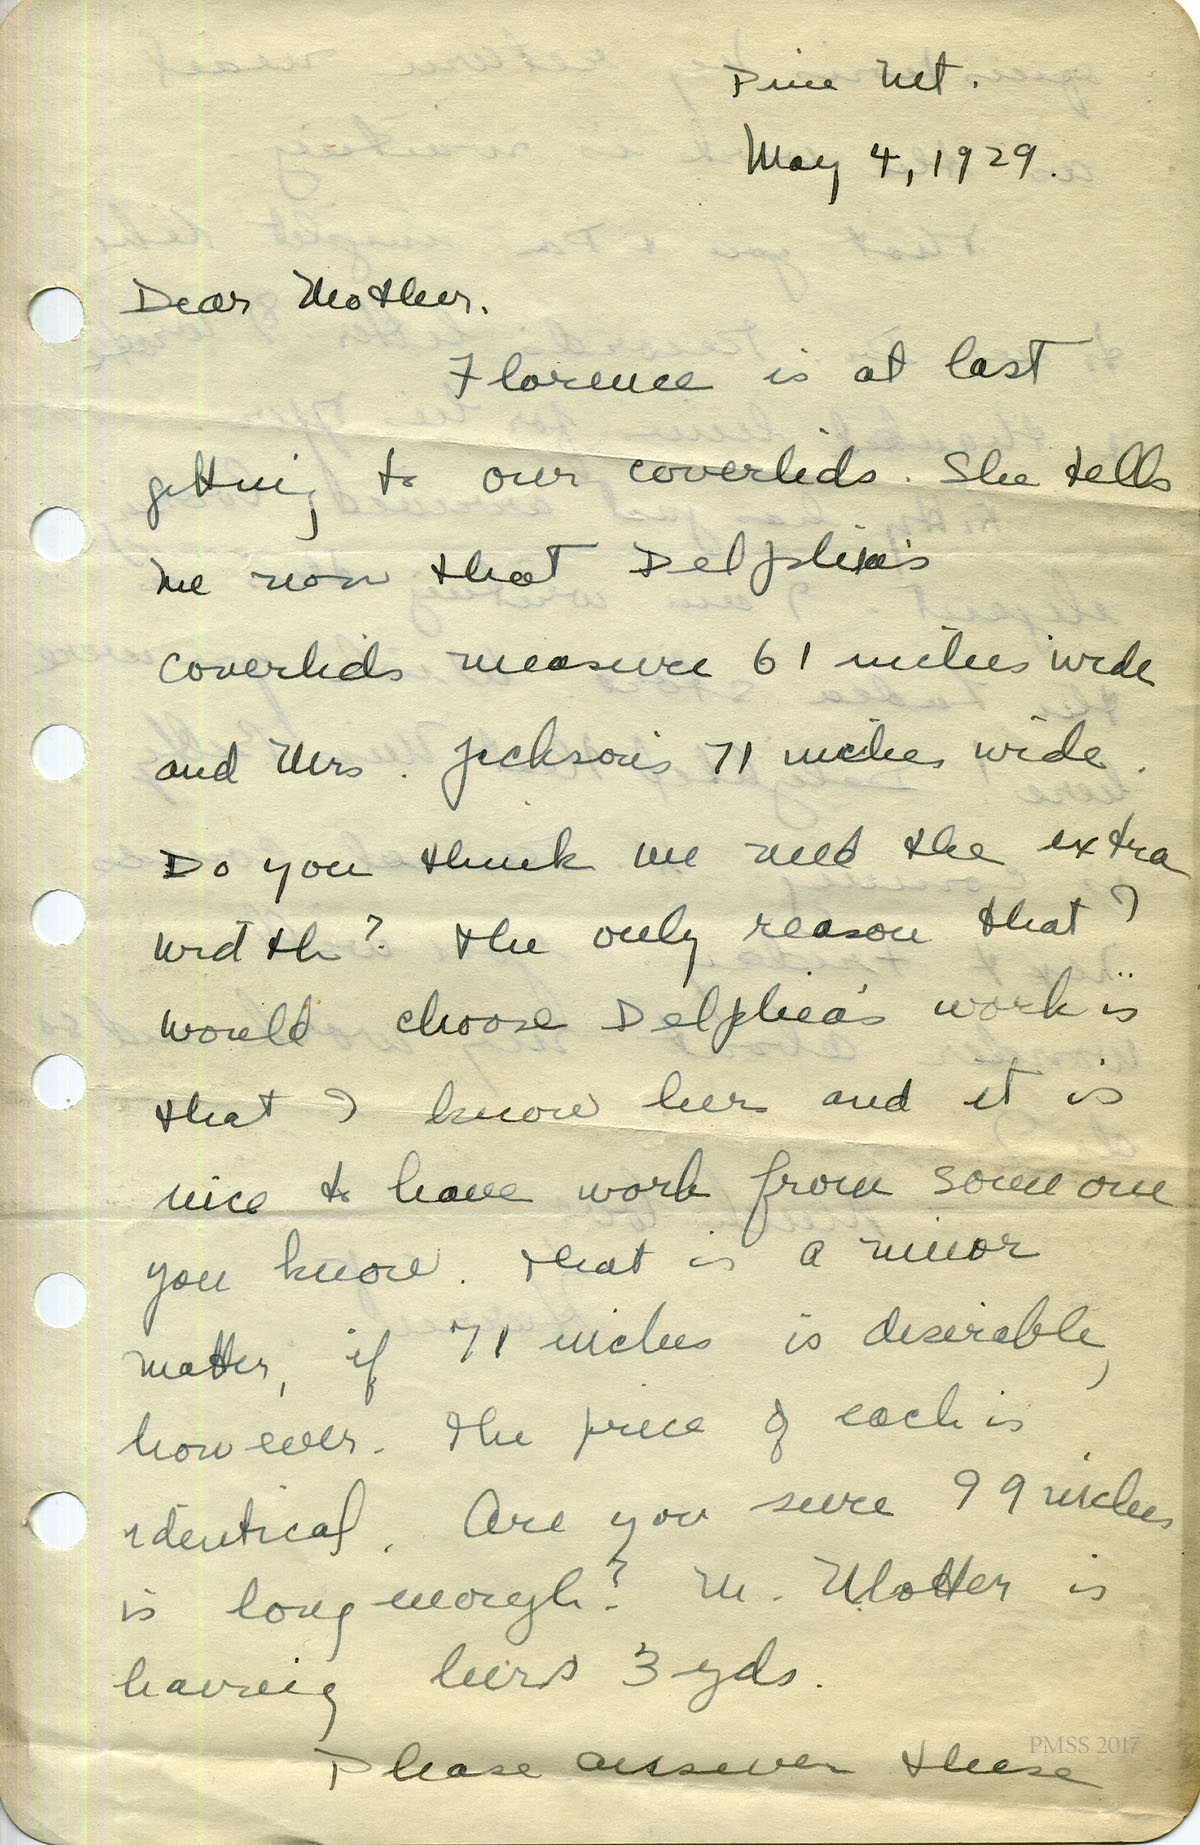 Pine Mt.
May 4, 1929.
Dear Mother.
Florence is at last
getting to our coverlids. She tells
me now that Delphia's
coverlids measure 61 inches wide
and Mrs. Jackson's 71 inches wide.
Do you think we need the extra
width? The only reason that I
would choose Delphia's work is
that I know her and it is
nice to have work from some one
you know. That is a minor
matter, if 71 inches is desirable,
however. The price of each is
identical. Are you sure 99 inches
is long enough? M. Motter is
having hers 3 yds.
Please answer these
PMSS 2017